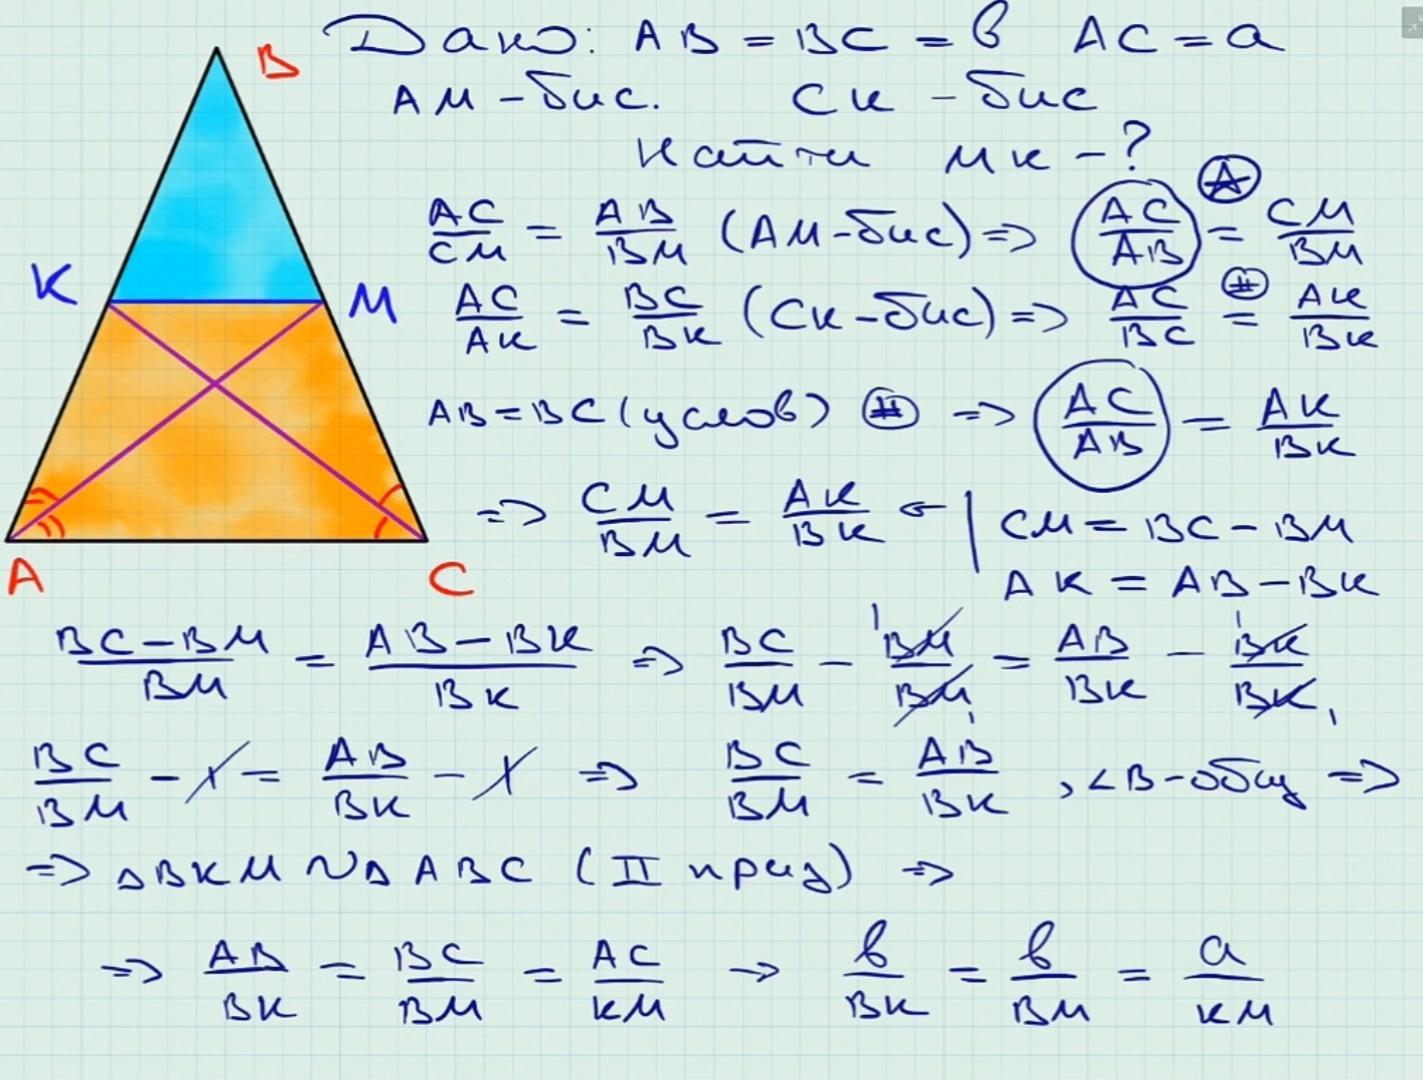 Дано: AB = BC = в AC = a
AM - бис. CK - бис
Найти MK - ?
B
AC/CM = AB/BM (AM-бис) => AC/AB = CM/BM
K
M
AC/AK = BC/BK (CK-бис) => AC/BC = AK/BK
AB=BC (услов) => AC/AB = AK/BK
=> CM/BM = AK/BK ← | CM = BC - BM
AK = AB - BK
A
C
BC-BM/BM = AB-BK/BK => BC/BM - BM/BM = AB/BK - BK/BK
BC/BM - 1 = AB/BK - 1 => BC/BM = AB/BK , ∠B-общ =>
=> ΔBKM ~ ΔABC (II призн) =>
=> AB/BK = BC/BM = AC/KM → в/BK = в/BM = a/KM